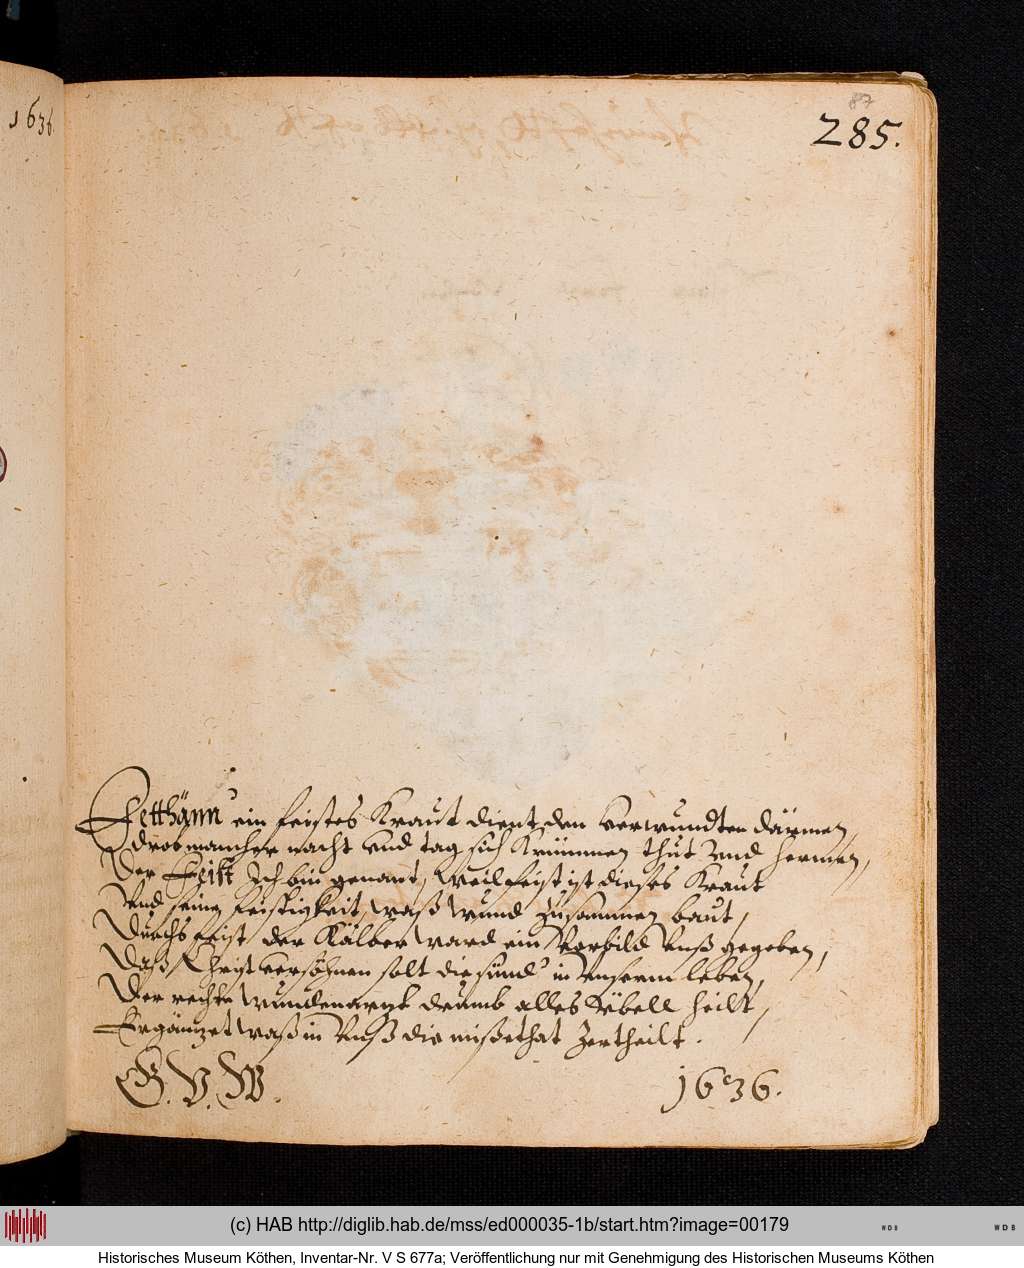 1636.
87
285.
Fetthänn ein feistes Kraut dient den verwundten därmen,
drob mancher nacht vnd tag sich Krümmen thut vnd hermen,
Der Feist Ich bin genant, Weil feist ist dieses Kraut
Vnd seine feistigkeit, waß wund zusammen baut,
Durchs feist der Kälber ward ein Vorbild Vnß gegeben,
Daß Christ versöhnen solt die sünd in Vnserm leben,
Der rechte Wundenarzt drumb alles Vbell heilt,
Ergäntzet waß in Vnß die mißethat Zertheilt.
G. V. W.
1636.
(c) HAB http://diglib.hab.de/mss/ed000035-1b/start.htm?image=00179
WDB
WDB
Historisches Museum Köthen, Inventar-Nr. V S 677a; Veröffentlichung nur mit Genehmigung des Historischen Museums Köthen